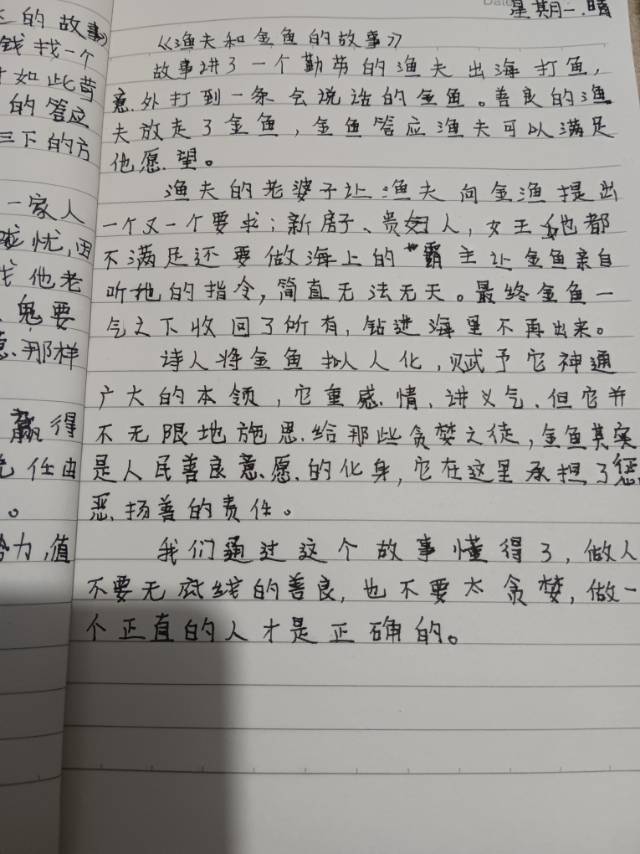 星期一.晴
《渔夫和金鱼的故事》
故事讲了一个勤劳的渔夫出海打鱼,
意外打到一条会说话的金鱼。善良的渔
夫放走了金鱼,金鱼答应渔夫可以满足
他愿望。
渔夫的老婆子让渔夫向金渔提出
一个又一个要求:新房子、贵妇人,女王她都
不满足还要做海上的"霸主让金鱼亲自
听她的指令,简直无法无天。最终金鱼一
气之下收回了所有,钻进海里不再出来。
诗人将金鱼拟人化,赋予它神通
广大的本领,它重感情、讲义气、但它并
不无限地施恩给那些贪婪之徒,金鱼其实
是人民善良意愿的化身,它在这里承担了惩
恶扬善的责任。
我们通过这个故事懂得了,做人
不要无底线的善良,也不要太贪婪,做一
个正直的人才是正确的。
的故事》
钱找一个
如此劳
的答应
三下的方
一家人
忧,因
找他老
鬼要
那样
赢得
任由
。
力,值